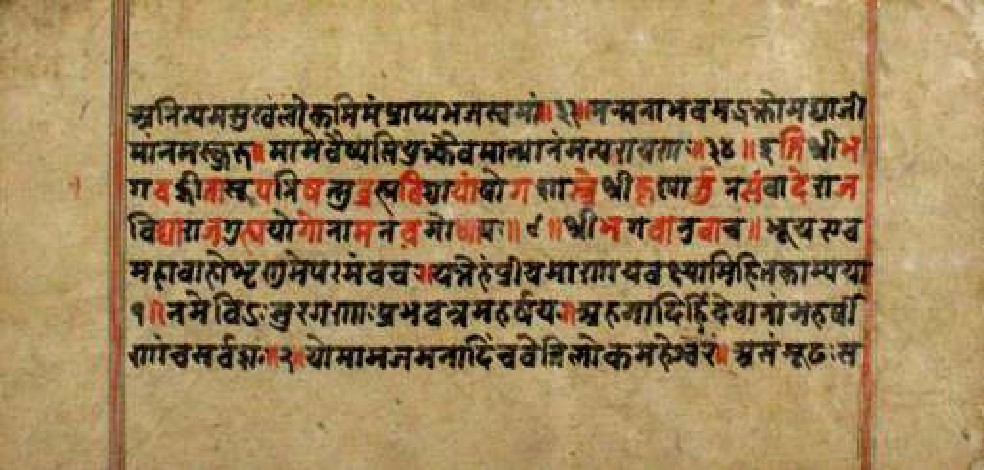 अनित्यमसुखंलोकमिमंप्राप्यभजस्वमां॥३३॥मन्मनाभवमऽक्तोमद्याजी
मांनमस्कुरु॥मामेवैष्यसियुक्त्वैवमात्मानंमत्परायणः॥३४॥इतिश्रीभ
गवद्गीतासूपनिषत्सुब्रह्मविद्यायांयोगशास्त्रेश्रीकृष्णार्जुनसंवादेराज
विद्याराजगुह्ययोगोनामनवमोध्यायः॥९॥श्रीभगवानुवाच॥भूयएव
महाबाहोशृणुमेपरमंवचः॥यत्तेहंप्रीयमाणायवक्ष्यामिहितकाम्यया
१॥नमेविऽःसुरगणाःप्रभवंनमहर्षयः॥अहमादिर्हिदेवानांमहर्षी
णांचसर्वशः॥२॥योमामजमनादिंचवेत्तिलोकमहेश्वरं॥असंमूढःस